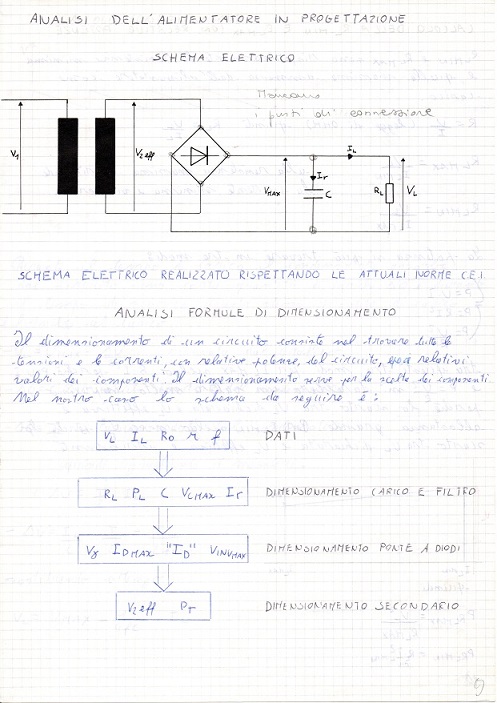 ANALISI DELL'ALIMENTATORE IN PROGETTAZIONE
SCHEMA ELETTRICO
Mancano
i punti di connessione
V1
V2eff
VMAX
Ir
C
IL
RL
VL
SCHEMA ELETTRICO REALIZZATO RISPETTANDO LE ATTUALI NORME C.E.I.
ANALISI FORMULE DI DIMENSIONAMENTO
Il dimensionamento di un circuito consiste nel trovare tutte le
tensioni e le correnti, con relative potenze, del circuito, ed i relativi
valori dei componenti. Il dimensionamento serve per la scelta dei componenti.
Nel nostro caso lo schema da seguire è:
VL IL Ro r f DATI
RL PL C VCMAX Ir DIMENSIONAMENTO CARICO E FILTRO
Vγ IDMAX "ID" VINVMAX DIMENSIONAMENTO PONTE A DIODI
V2eff PT DIMENSIONAMENTO SECONDARIO